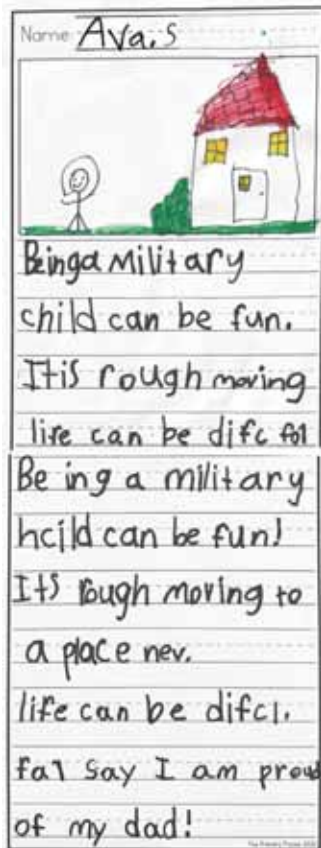 Name: Ava.s
Being a military
child can be fun.
It is rough moving
life can be difc fal
Be ing a military
hcild can be fun!
Its rough moving to
a place nev.
life can be difcl.
fal say I am proud
of my dad!